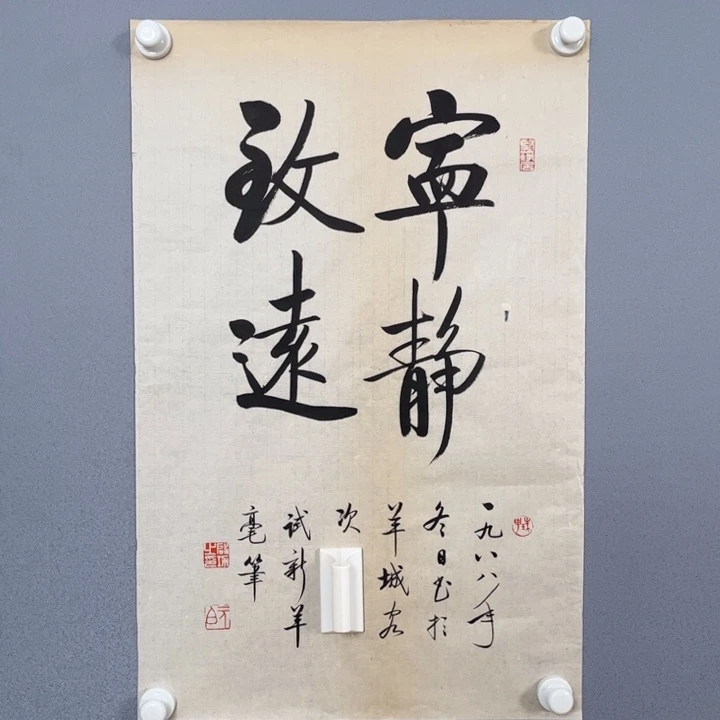 寧靜
致遠
一九八八年
冬日书於
羊城客
次
試新羊
毫筆